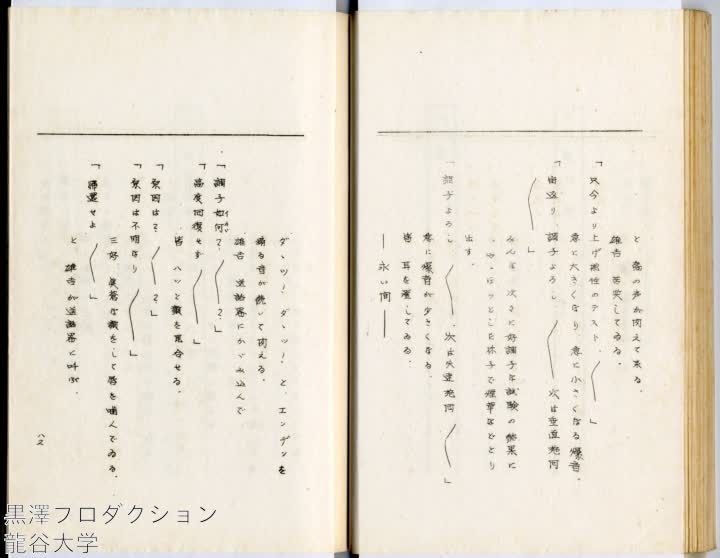 と 森の声が闻えて来る。
雄吉 苦笑してゐる。
「只今より上げ
性のテスト、〱」
急に大きくなり 急に小さくなる爆音。
「宙返り、調子よろし 〱 次は垂直旋回
〱」
みんな 次々に好調子な試験の結果に
ホッとした様子で煙草などとり
出す。
「調子よろし 〱、次は失速旋回 〱」
急に爆音が少さくなる。
皆 耳を澄してゐる。
— 永い间 —
ダヽッ！ダヽッ！と、エンヂンを
鳴る音が続いて闻える。
雄吉 送話器にかゞみ込んで
「調子如何？、〱？」
「高度回復せず 〱」
皆 ハッと顔を見合せる。
「原因は？、〱？」
「原因は不明なり 〱」
三好 真蒼な顔をして唇を嚙んでゐる。
「帰還せよ 〱」
と 雄吉が送話器に叫ぶ。
八二
黒澤プロダクション
龍谷大学